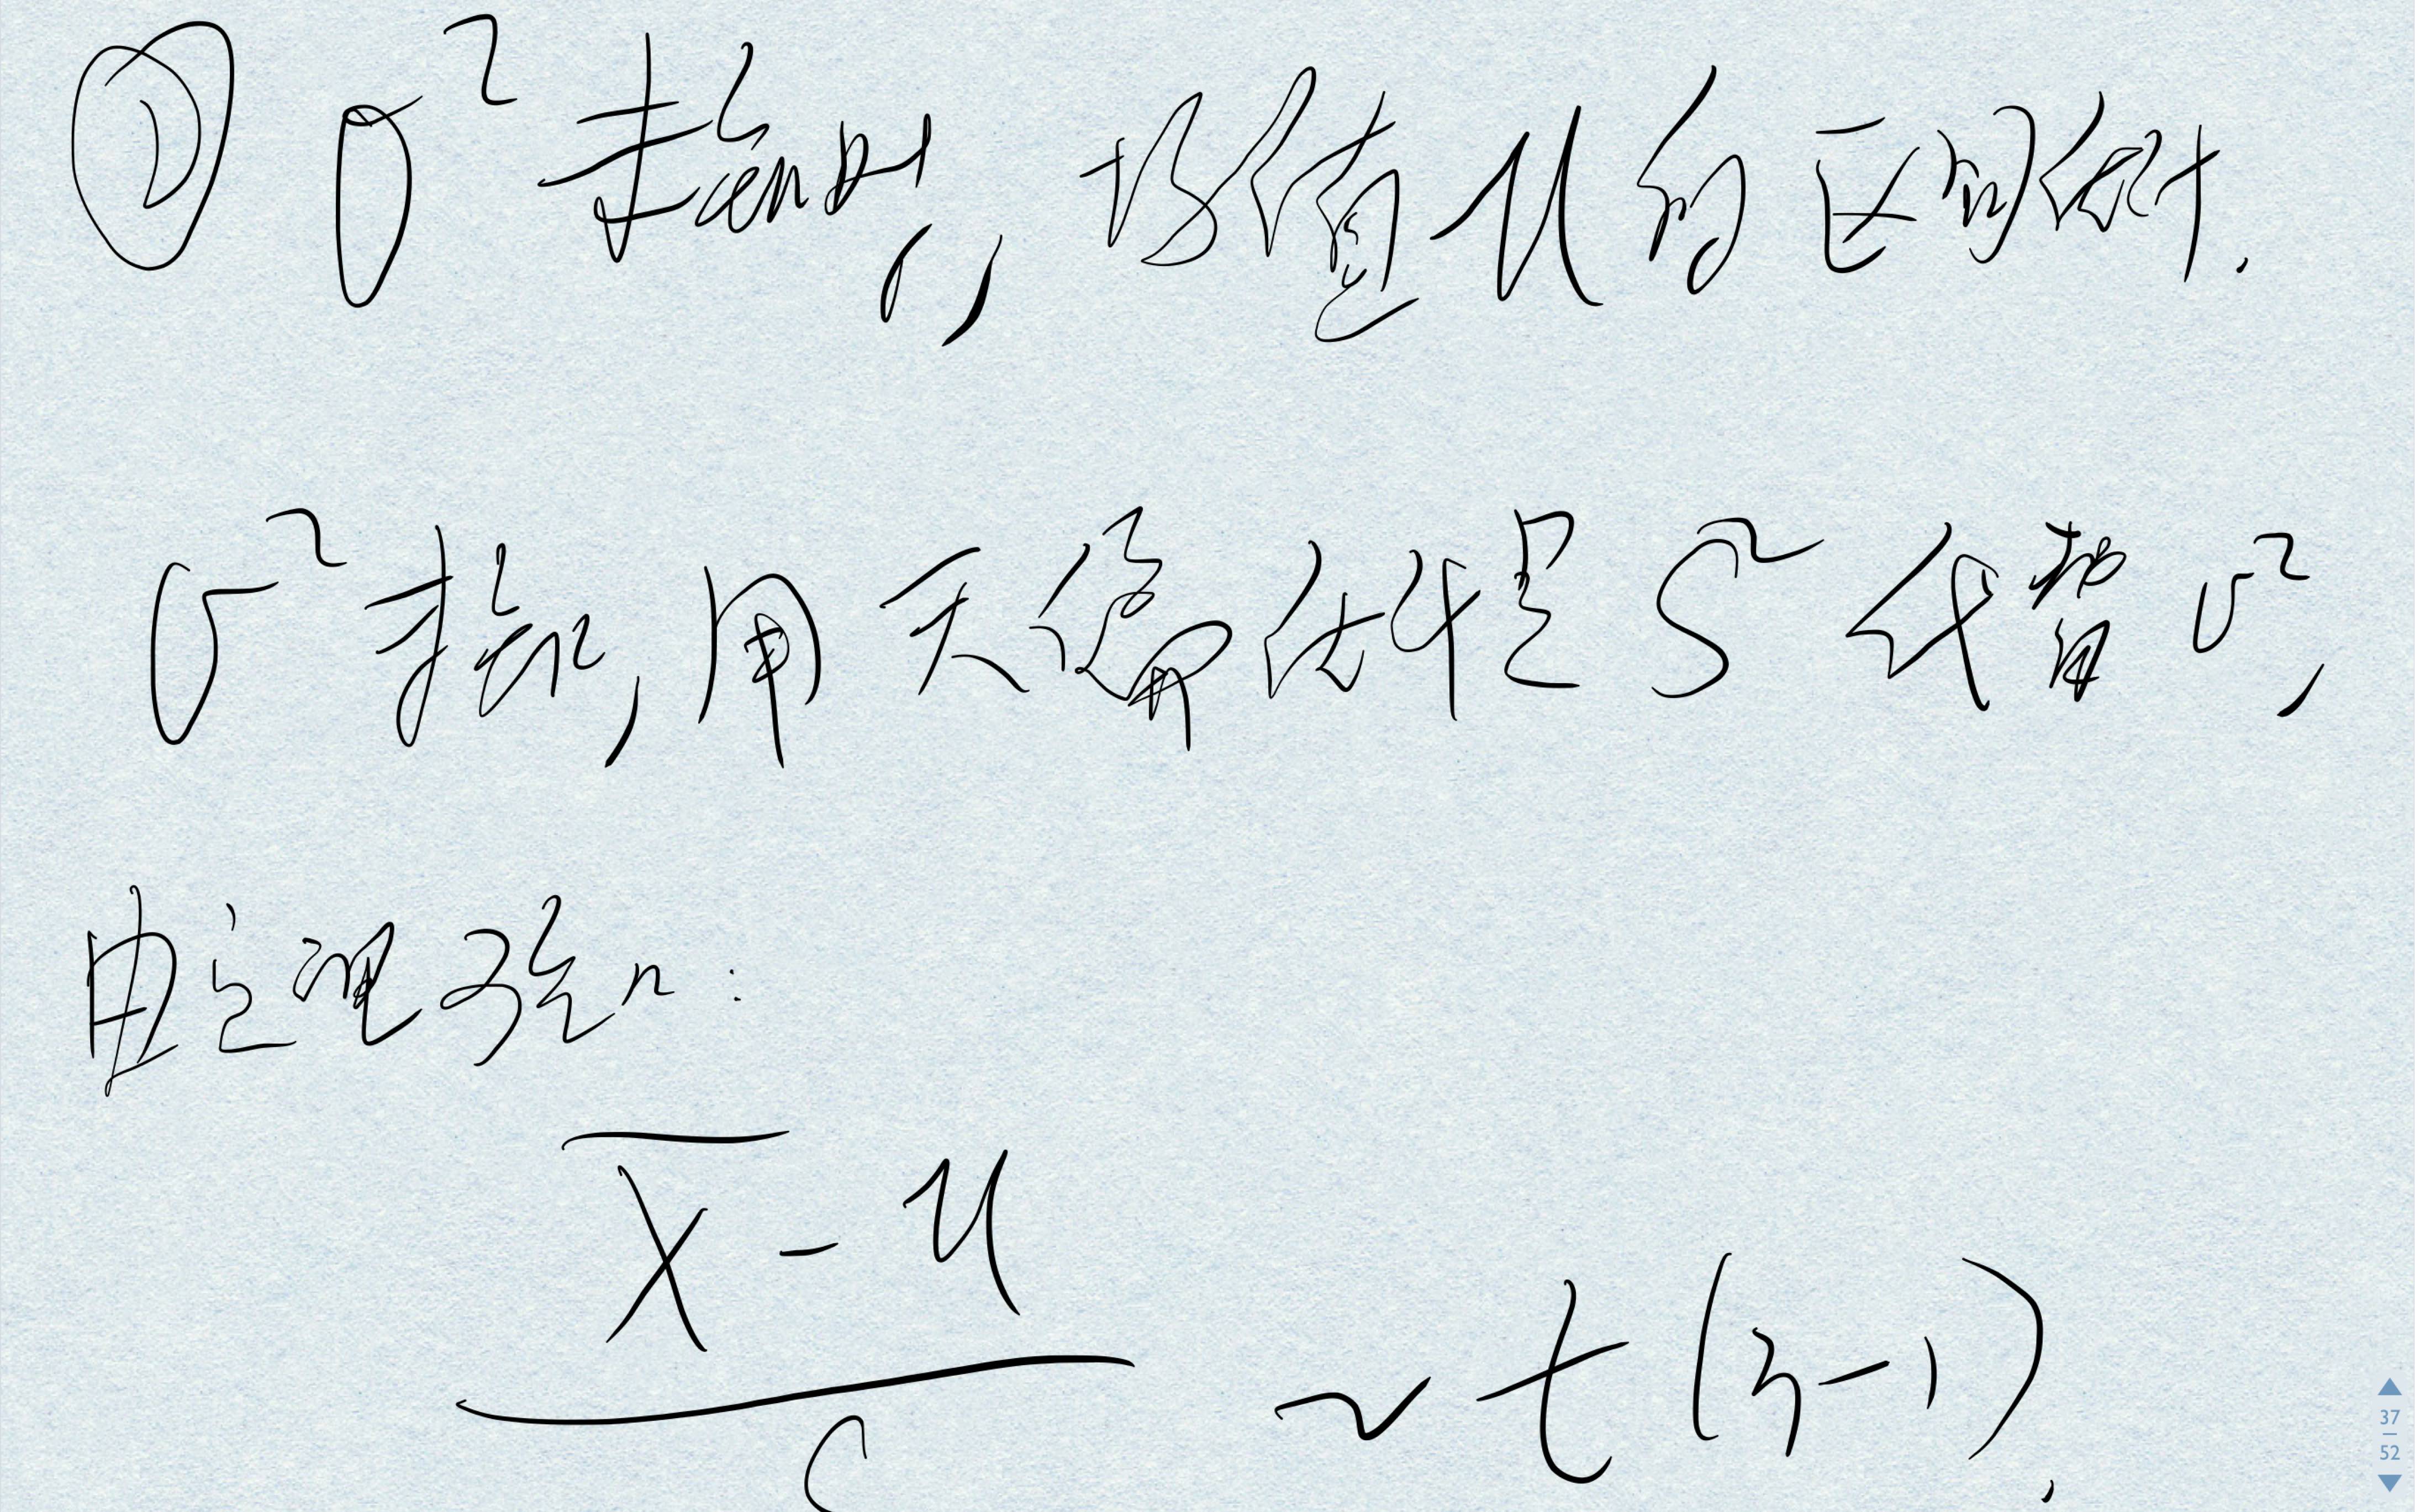 ② σ² 未知时, 均值 μ 的区间估计.
σ² 未知, 用无偏估计量 S² 代替 σ²,
由定理可知:
X̄ - μ
─── ~ t(n-1).
S
37
52